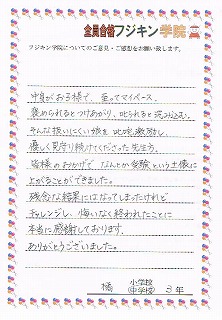 全員合格フジキン学院
フジキン学院についてのご意見・ご感想をお願い致します。
中身がお子様で、至ってマイペース。
褒められるとつけあがり、叱られると沈み込む。
そんな扱いにくい娘を叱咤激励し
優しく見守り続けてくださった先生方。
皆様のおかげでなんとか受験という土俵に
上がることができました。
残念な結果にはなってしまったけれど
チャレンジし、悔いなく終われたことに
本当に感謝しております。
ありがとうございました。
橘 小学校
中学校 3年